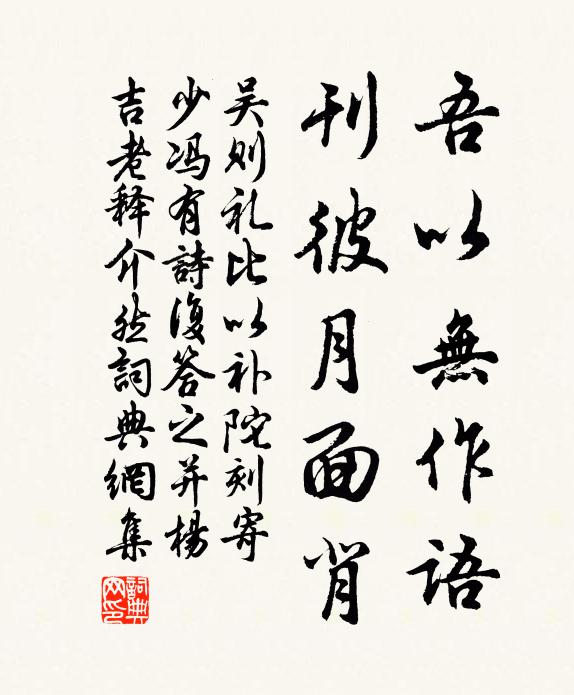 吾以無作語
刊彼月面背
吴则礼比以补陀刻寄
少冯有詩復答之并楊
吉老释介然詞典網集
詞典网印